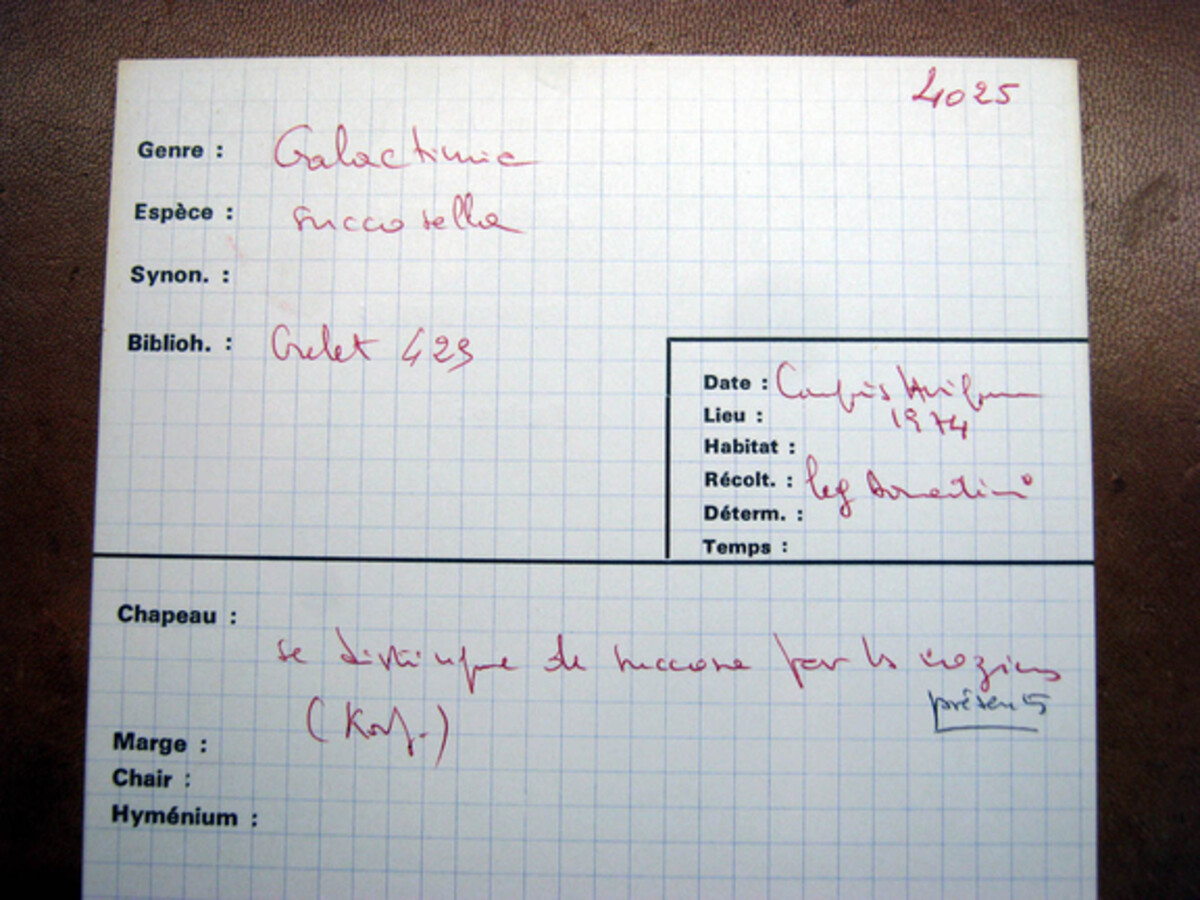 4025
Genre : Galactinia
Espèce : succosella
Synon. :
Biblioh. : Grelet 423
Date :
Lieu : 1974
Habitat :
Récolt. : leg Donadini
Déterm. :
Temps :
Chapeau :
se distingue de succosa par les
présents
(Korf.)
Marge :
Chair :
Hyménium :